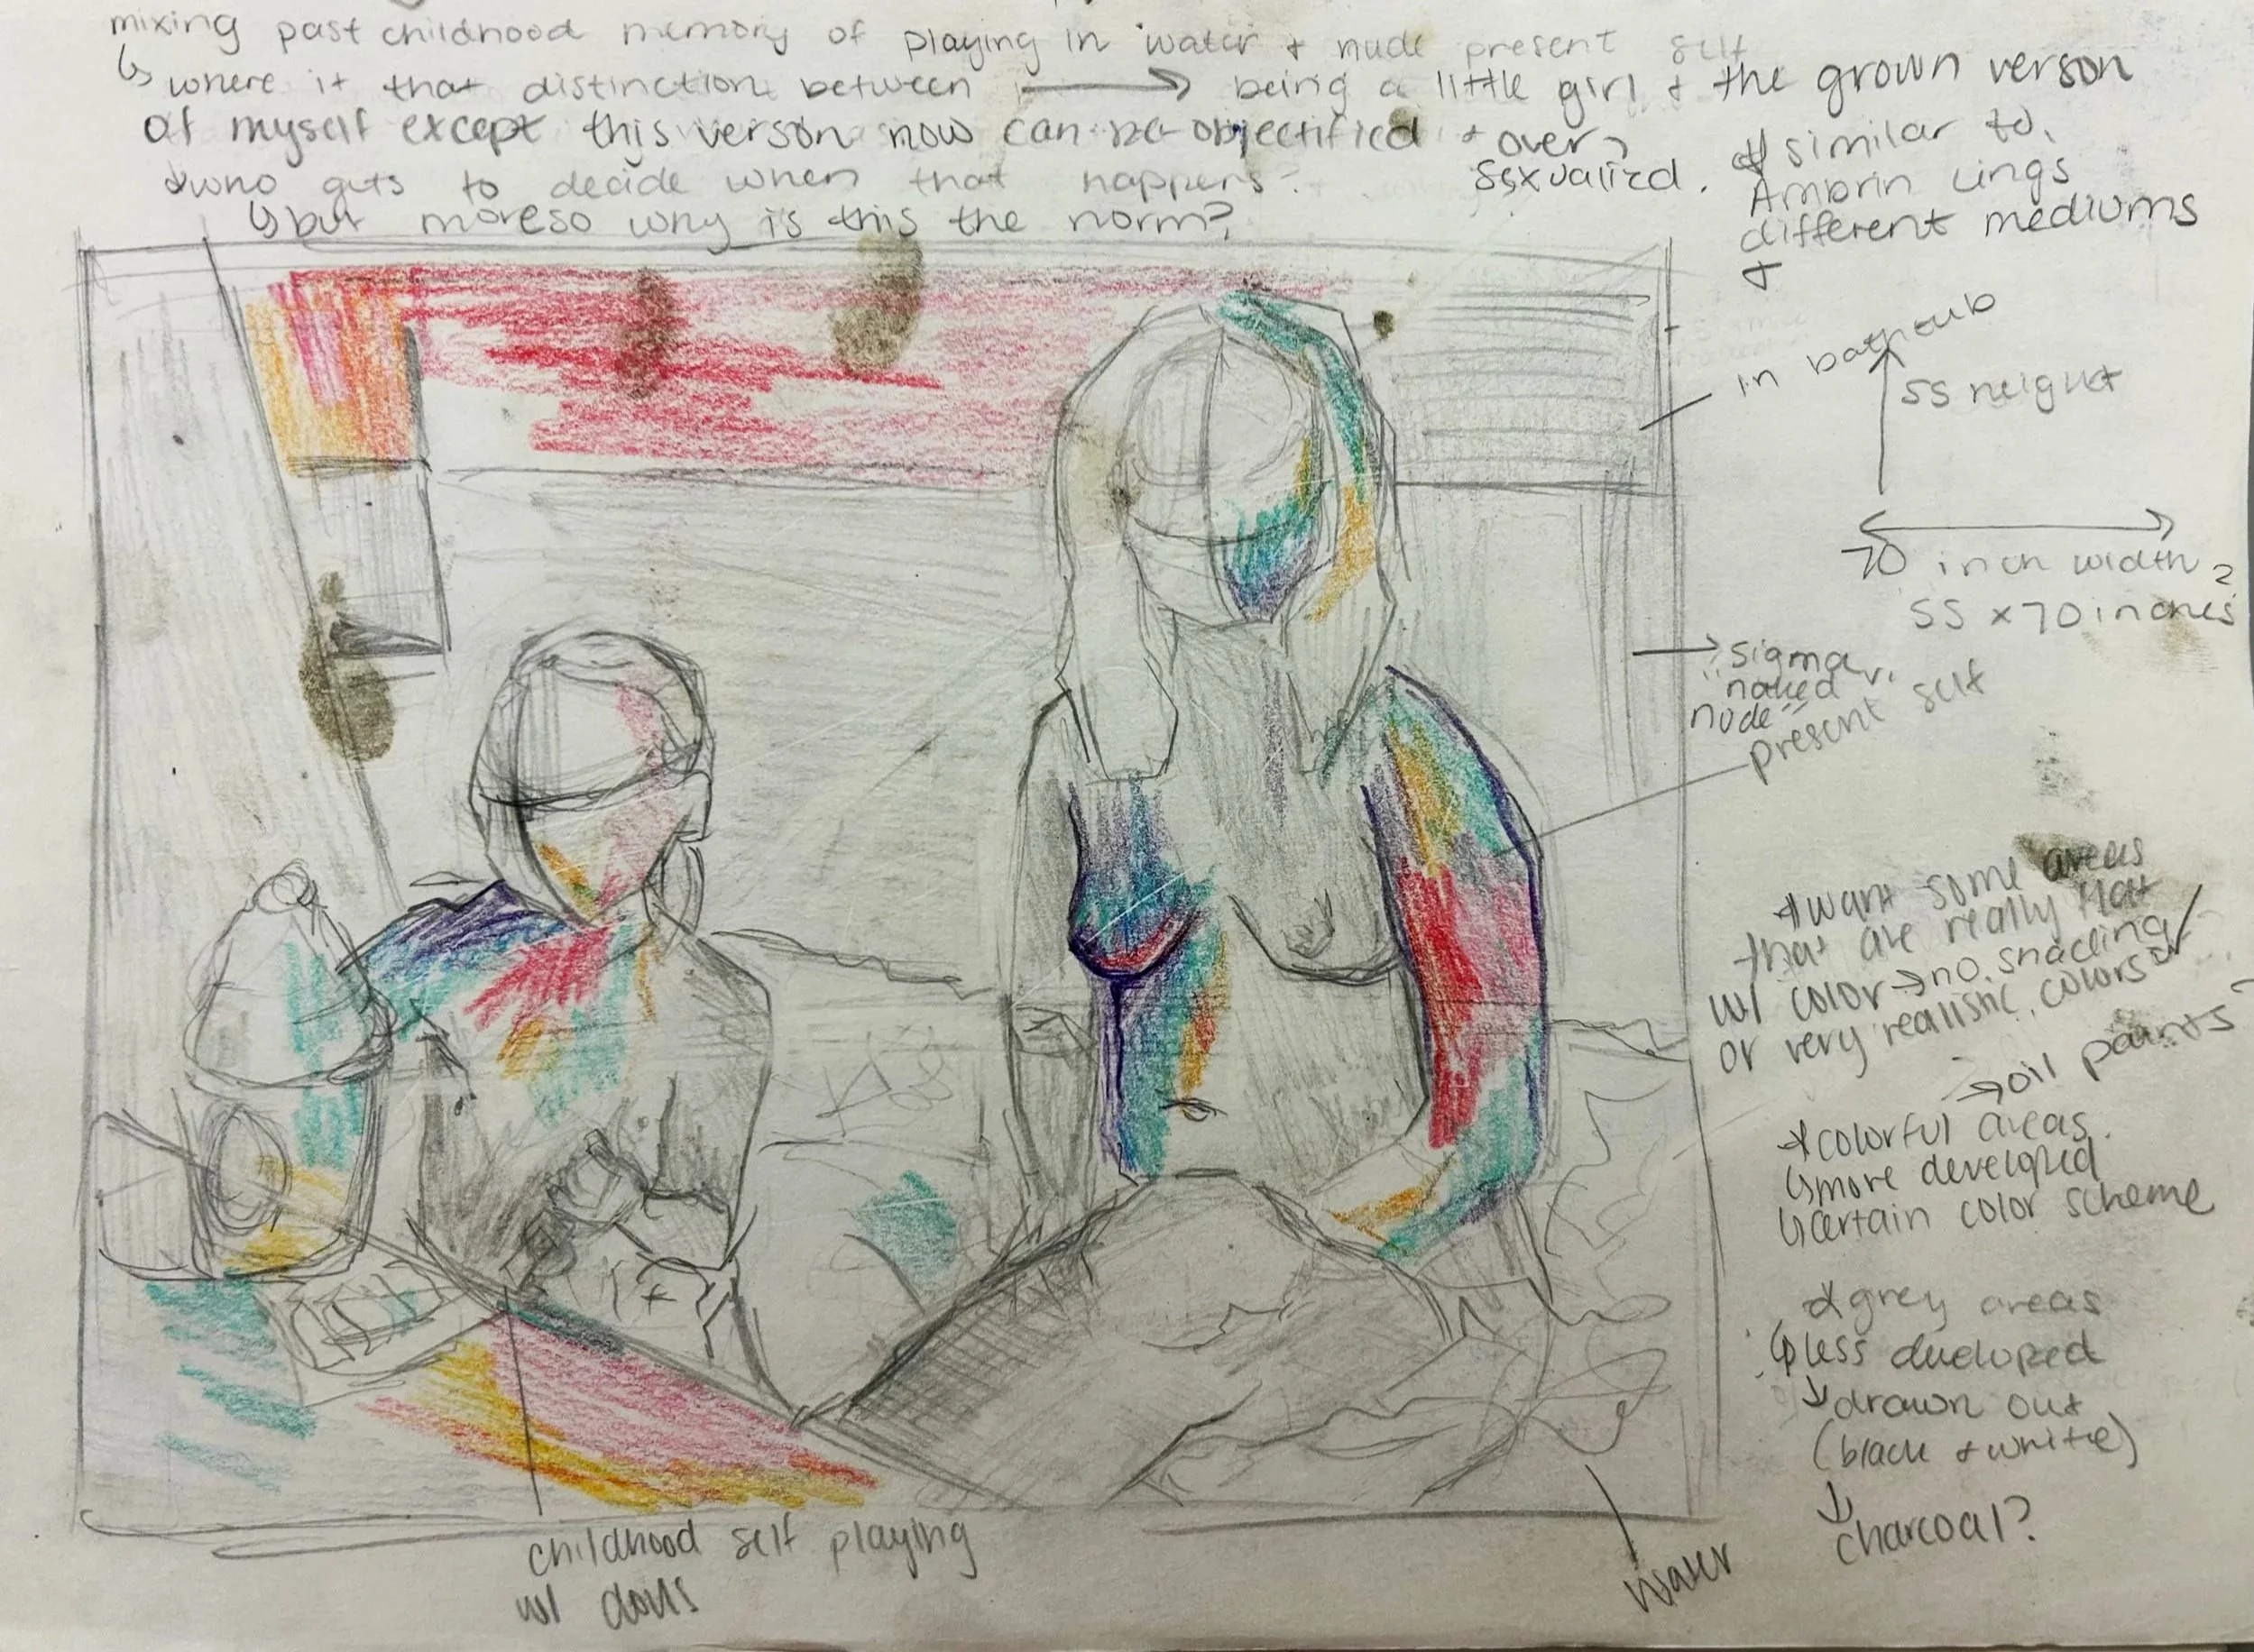 mixing past childhood memory of playing in water + nude present self
↳ where it that distinction between → being a little girl + the grown verson
of myself except this verson now can be objectified + over
sexualized.
* who gets to decide when that happens?
↳ but moreso why is this the norm?
* similar to
different mediums
+
in bathtub
55 height
70 inch width
55 x 70 inches
"naked
nude"
present self
* want some areas
that are really flat
w/ color → no shading
or very realistic colors
→ oil paints
* colorful areas
↳ more developed
↳ certain color scheme
* grey areas
↳ less developed
↳ drawn out
(black + white)
↓
charcoal?
childhood self playing
w/ dolls
water